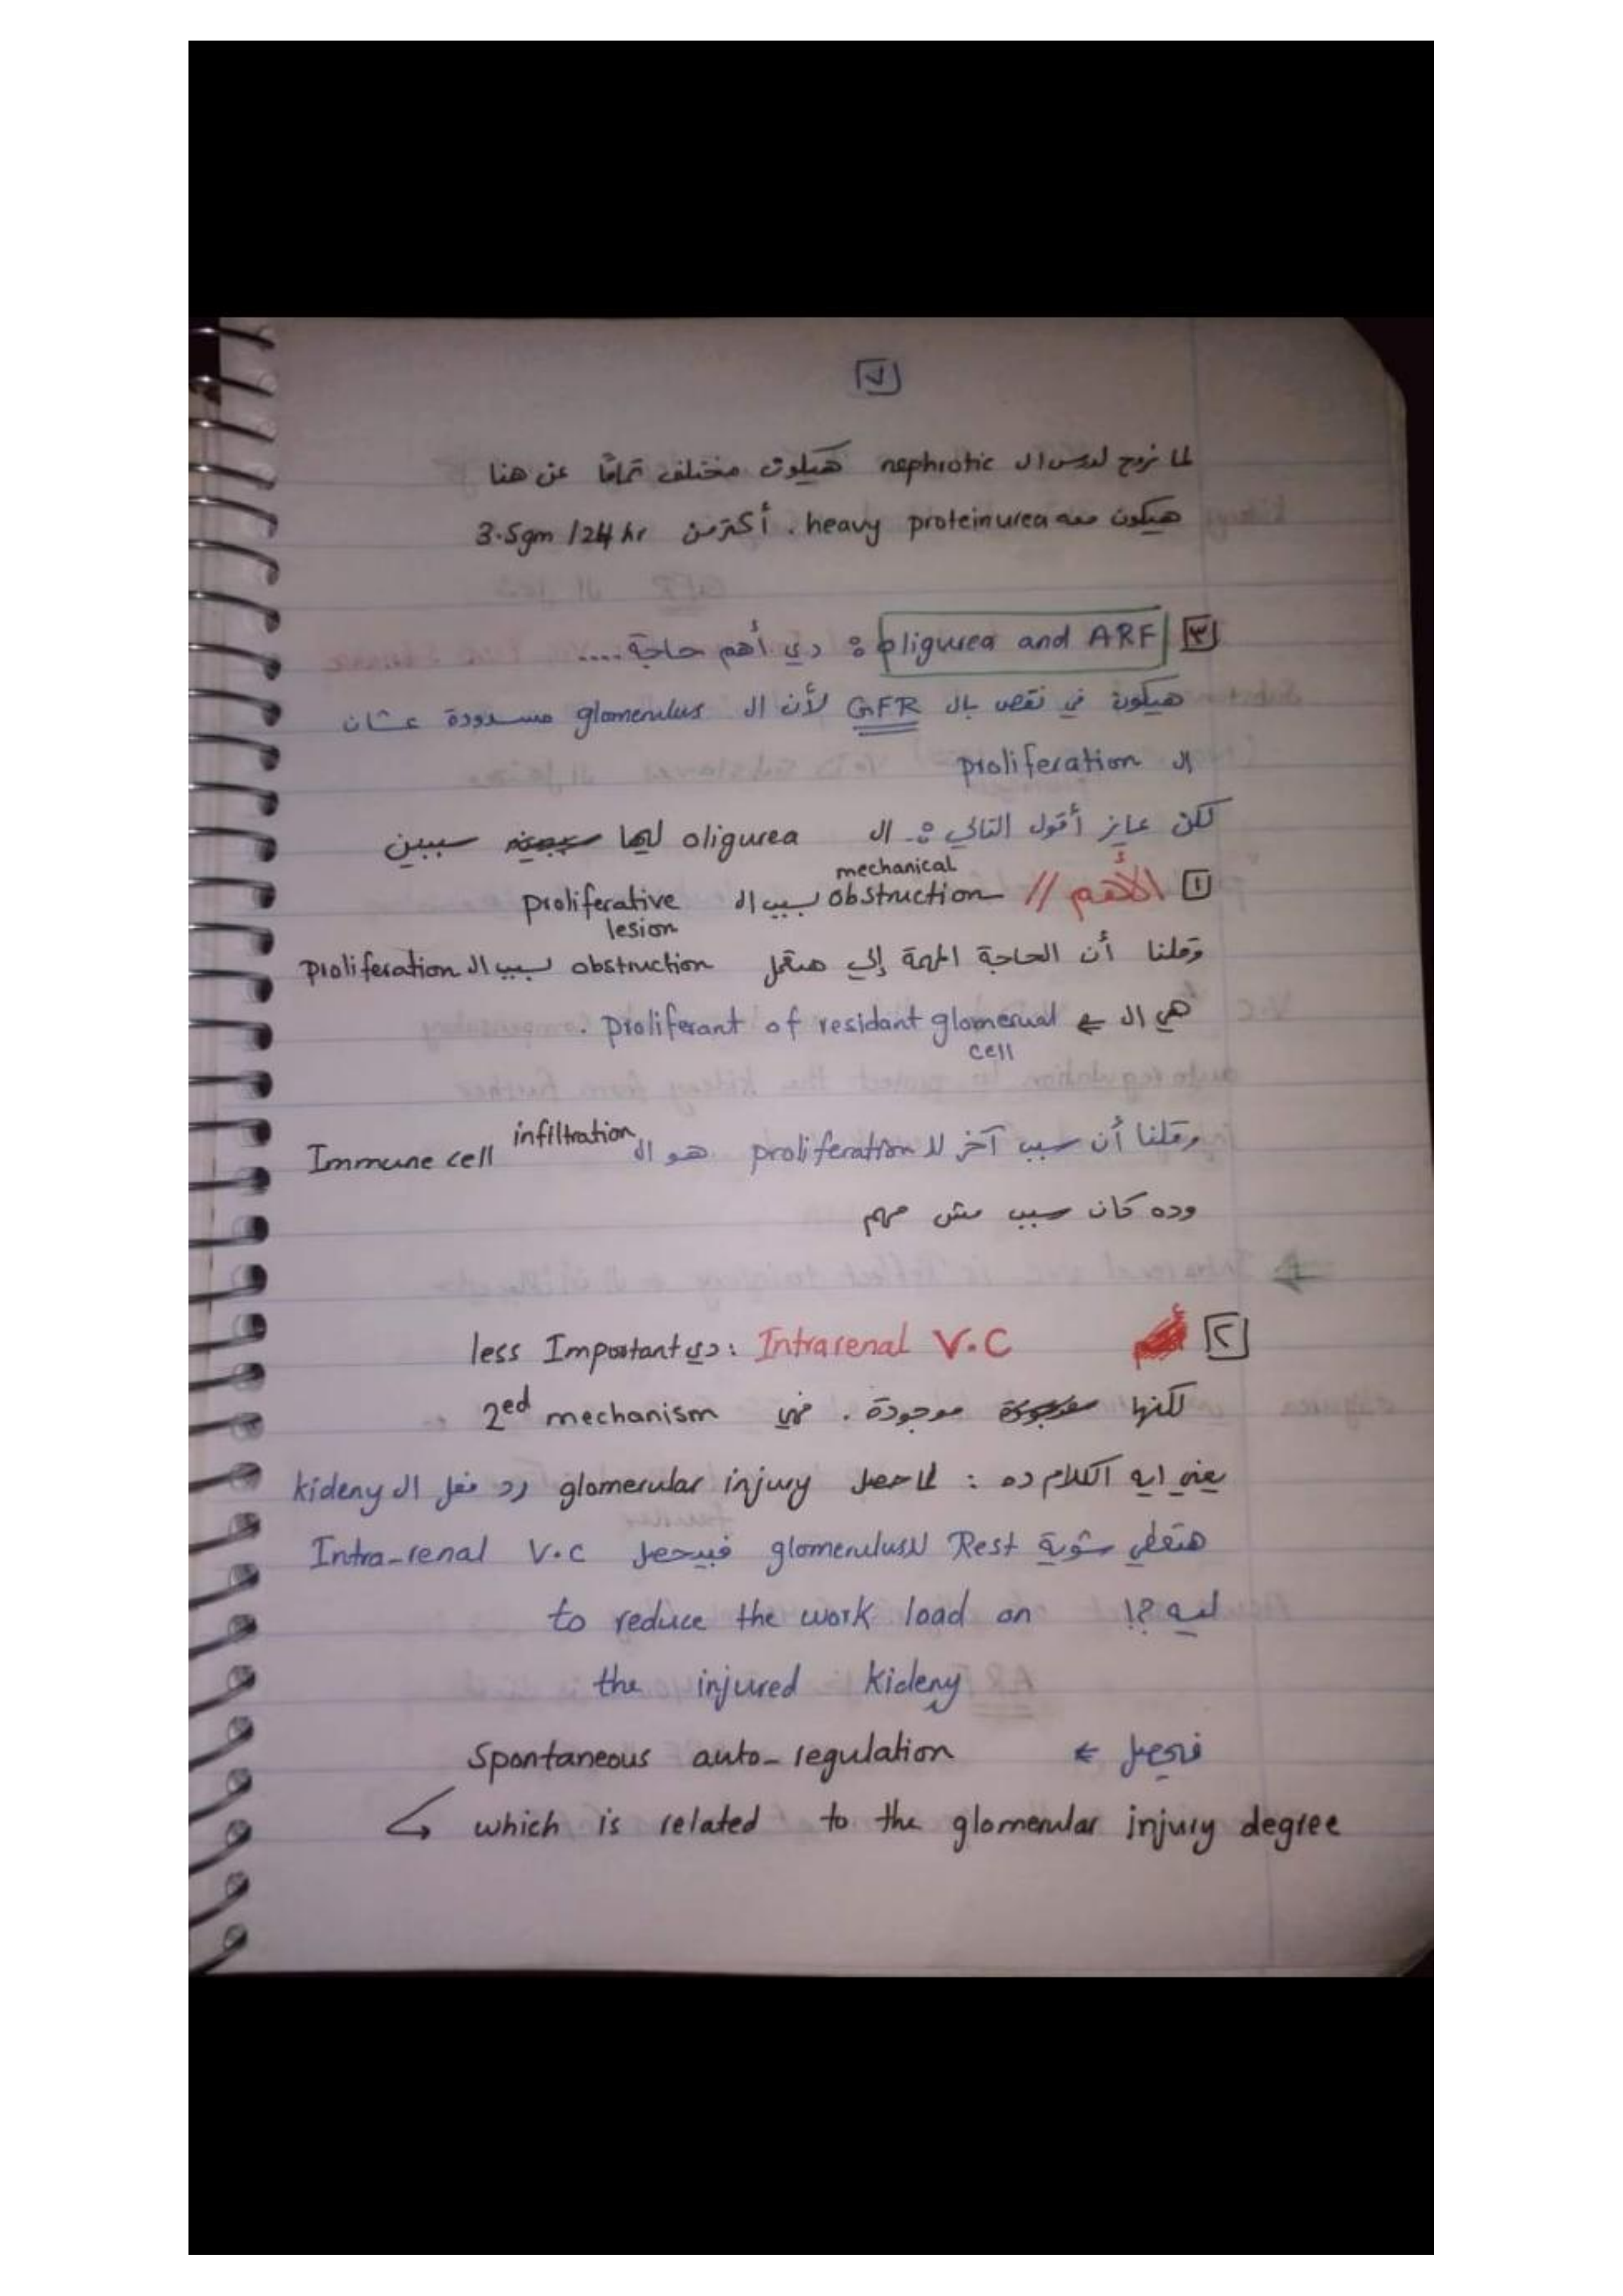 ٧
لما نروح لدرس ال nephrotic هيكون مختلف تمامًا عن هنا
هيكون معه heavy proteinurea . أكتر من 3.5gm /24 hr
٣ oligurea and ARF : دي أهم حاجة ....
هيكون في نقص بال GFR لأن ال glomerulus مسدودة عشان
ال proliferation
لكن عايز أقول التالي :- ال oligurea ليها سببين
١ الأهم // mechanical obstruction بسبب ال proliferative lesion
وقلنا أن الحاجة المهمة إلي هتعمل obstruction بسبب ال proliferation
هي ال proliferant of residant glomerual cell .
وقلنا أن سبب آخر لل proliferation هو ال infiltration Immune cell
وده كان سبب مش مهم
٢ Intrarenal V.C : دي less Important
لكنها موجودة . فهي 2ed mechanism
يعني ايه الكلام ده : لما حصل glomerular injury رد فعل ال kideny
هتعطي شوية Rest لل glomerulus فبيحصل Intra-renal V.C
ليه ?! to reduce the work load on
the injured kideny
فيحصل ← Spontaneous auto-regulation
↳ which is related to the glomerular injury degree